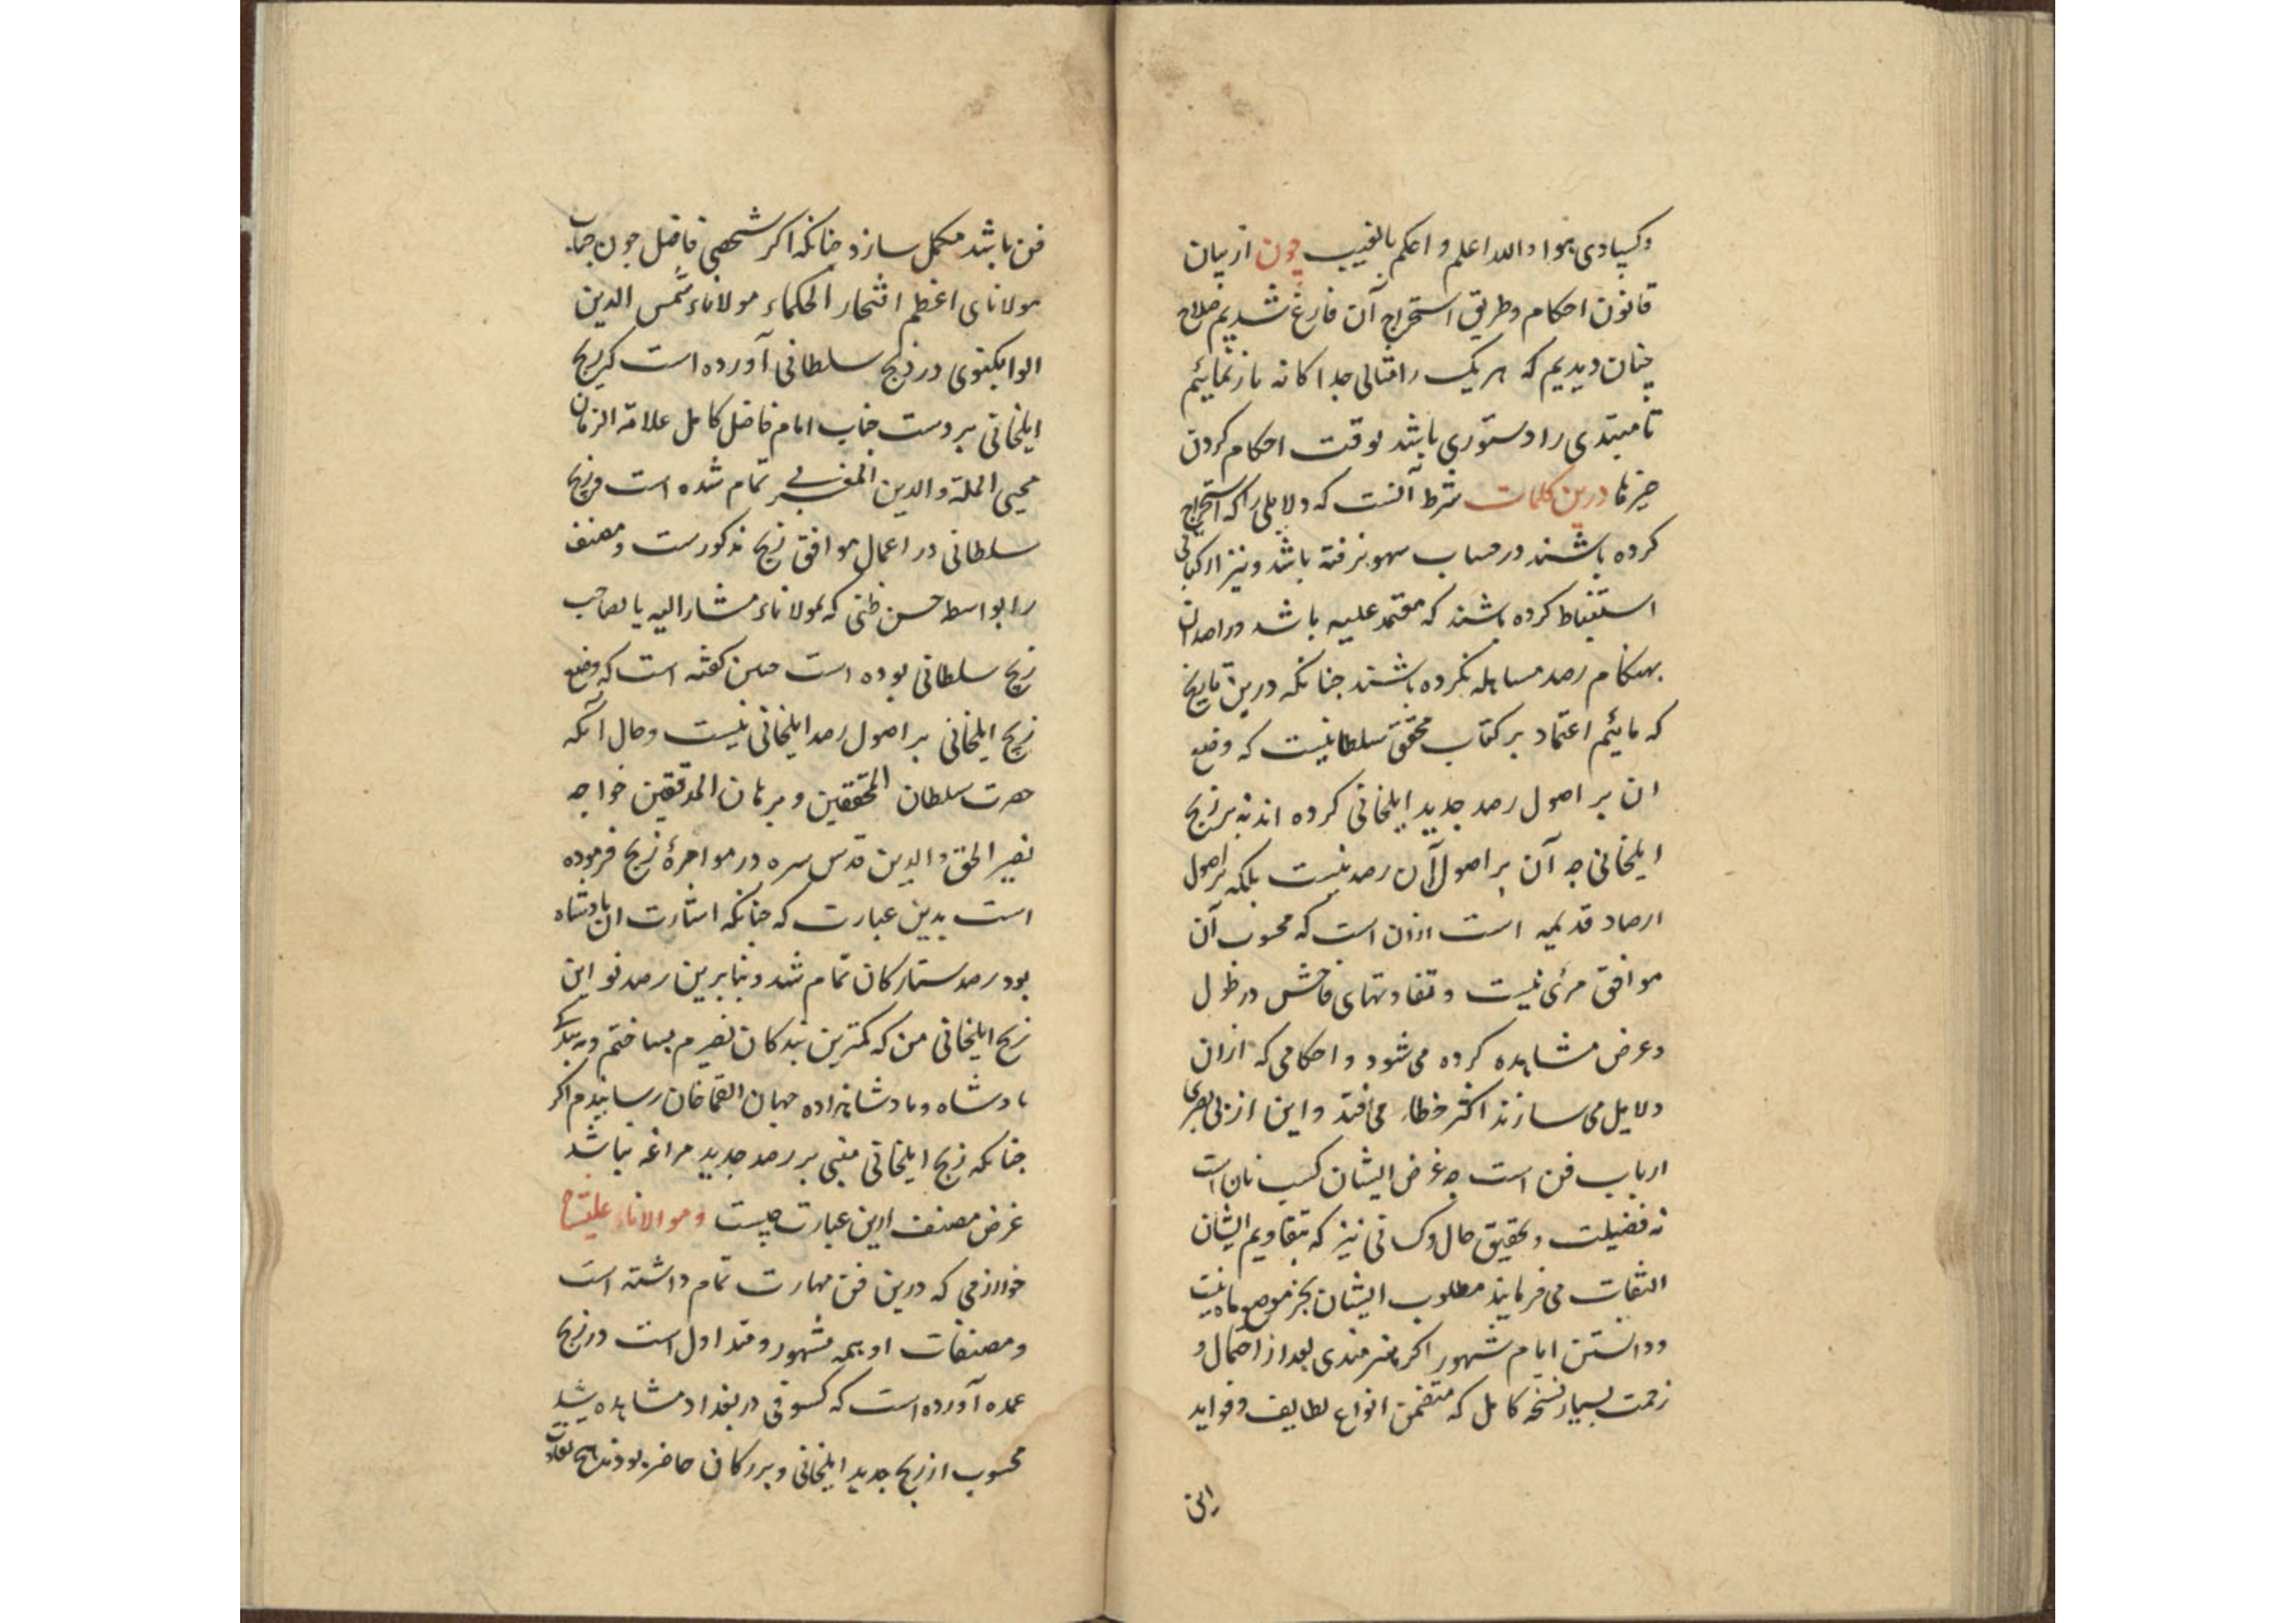 وکسادی بود والله اعلم و احکم بالغیب چون از بیان
قانون احکام و طریق استخراج آن فارغ شدیم صلاح
چنان دیدیم که هر یک را مثالی جداکانه باز نمائیم
تا مبتدی را دستوری باشد بوقت احکام کردن
درین کلمات شرط آنست که دلایلی را که استخراج
کرده باشند در حساب سهو نرفته باشد و نیز از کتابی
استنباط کرده باشند که معتمد علیه باشد و راصدان
بهنکام رصد مساهله نکرده باشند جنانکه درین تاریخ
که مائیم اعتماد بر کتاب محقق سلطانیست که وضع
ان بر اصول رصد جدید ایلخانی کرده اند نه بر زیج
ایلخانی چه آن بر اصول آن رصد نیست بلکه بر اصول
ارصاد قدیمه است ازان است که محسوب آن
موافق مرئی نیست و تفاوتهای فاحش در طول
و عرض مشاهده کرده می شود و احکامی که ازان
دلایل می سازند اکثر خطاء می افتد و این از بی بصری
ارباب فن است چه غرض ایشان کسب نان است
نه فضیلت و تحقیق حال و کسانی نیز که بتقاویم ایشان
التفات می فرمایند مطلوب ایشان بجز نیست
و دانستن ایام شهور اکر هنرمندی بعد از احتمال و
زحمت بسیار نسخه کامل که متضمن انواع لطایف و فواید
این
فن باشد مکمل سازد جنانکه اکر شخصی فاضل جون جناب
مولانای اعظم افتخار الحکماء مولاناء شمس الدین
الوابکنوی در زیج سلطانی آورده است که زیج
ایلخانی بر دست جناب امام فاضل کامل علامة الزمان
محیی الملة والدین المغربی تمام شده است و زیج
سلطانی در اعمال موافق زیج مذکورست و مصنف
را بواسطه حسن ظنی که بمولاناء مشار الیه یا بصاحب
زیج سلطانی بوده است جنین کفته است که وضع
زیج ایلخانی بر اصول رصد ایلخانی نیست و حال آنکه
حضرت سلطان المحققین و برهان المدققین خواجه
نصیر الحق والدین قدس سره در مواجرهٔ زیج فرموده
است بدین عبارت که جنانکه اشارت ان بادشاه
بود رصد ستارکان تمام شد و بنابرین رصد نو این
زیج ایلخانی من که کمترین بندکان نصیرم بساختم و به بندکی
بادشاه و بادشاهزاده جهان ابقاخان رسانیدم اکر
جنانکه زیج ایلخانی مبنی بر رصد جدید مراغه نباشد
غرض مصنف ازین عبارت چیست و مولاناء علیشاه
خوارزمی که درین فن مهارت تمام داشته است
و مصنفات او همه مشهور و متداول است در زیج
عمده آورده است که کسوفی در بغداد مشاهده شد
محسوب از زیج جدید ایلخانی و بزرکان حاضر بودند هیچ تفاوت